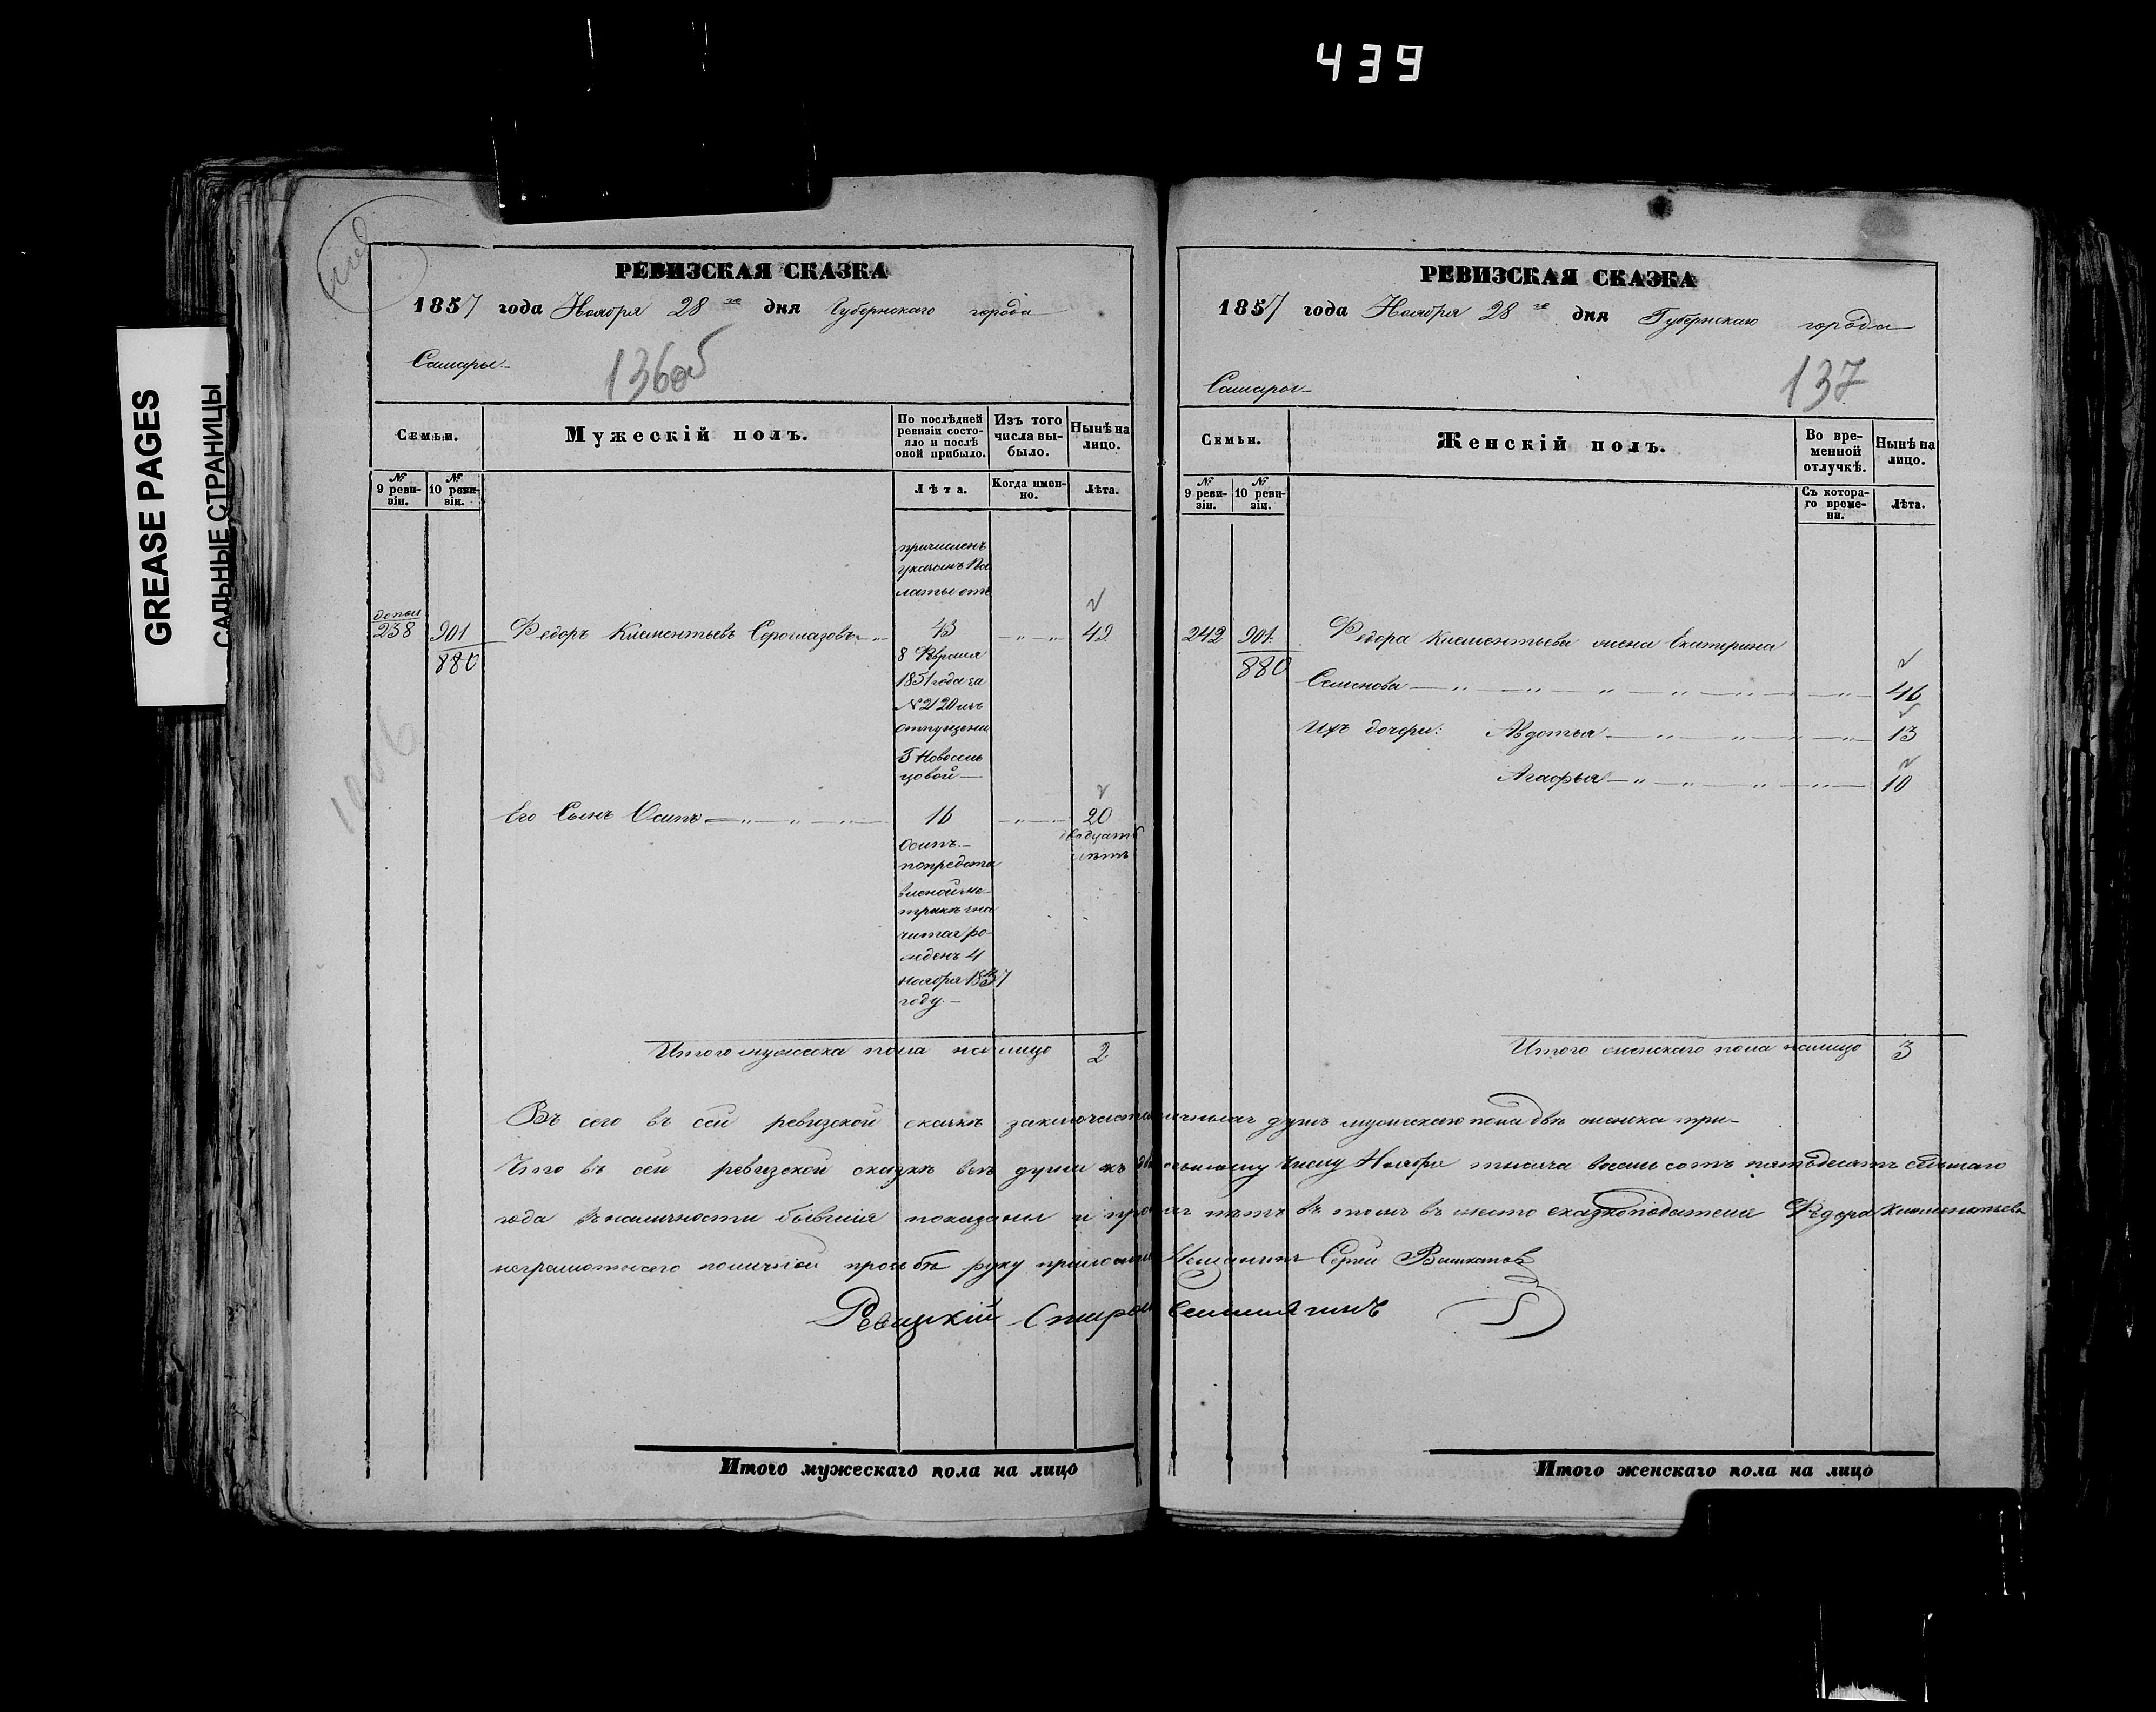 439
GREASE PAGES
САЛЬНЫЕ СТРАНИЦЫ
РЕВИЗСКАЯ СКАЗКА
1857 года Ноября 28 го дня Губернскаго города
Самары
136об
Семьи.
Мужескій полъ.
По послѣдней ревизіи состо-
яло и послѣ оной прибыло.
Изъ того числа вы-
было.
Нынѣ на лицо.
№ 9 реви-
зіи.
№ 10 реви-
зіи.
Лѣта.
Когда имен-
но.
Лѣта.
причисленъ
указомъ Па
латы отъ
допол
238 901 Федоръ Клементьевъ 43 42
880
8 Февраля
1851 года за
№ 2120 изъ
отпущени
Г Новосель
цовой
Его Сынъ Осипъ 16 20
двадцать
лѣтъ
Осипъ
попредста
вленой ме-
трикѣ зна
чится ро-
жденъ 4
ноября 1837
году.
Итого мужеска пола на лицо 2
РЕВИЗСКАЯ СКАЗКА
1857 года Ноября 28 го дня Губернскаго города
Самары
137
Семьи.
Женскій полъ.
Во вре-
менной
отлучкѣ.
Нынѣ на
лицо.
№ 9 реви-
зіи.
№ 10 реви-
зіи.
Съ котора-
го време-
ни.
Лѣта.
242 901 Федора Клементьева жена Екатерина
880
Семенова 46
Ихъ дочери: Авдотья 13
Агафья 10
Итого женскаго пола налицо 3
въ сей ревизской сказкѣ душъ мужескаго пола двѣ женска три
Что въ сей ревизской сказкѣ всѣ души къ числу Ноября тысяча восемь сотъ пятьдесятъ седьмаго
года въ наличности бывшія показаны и нѣтъ въ томъ въ место сказкоподателя Федора Клементьева
неграмотнаго поличной прозьбѣ руку приложилъ Мещанинъ Сергей
Итого мужескаго пола на лицо
Итого женскаго пола на лицо